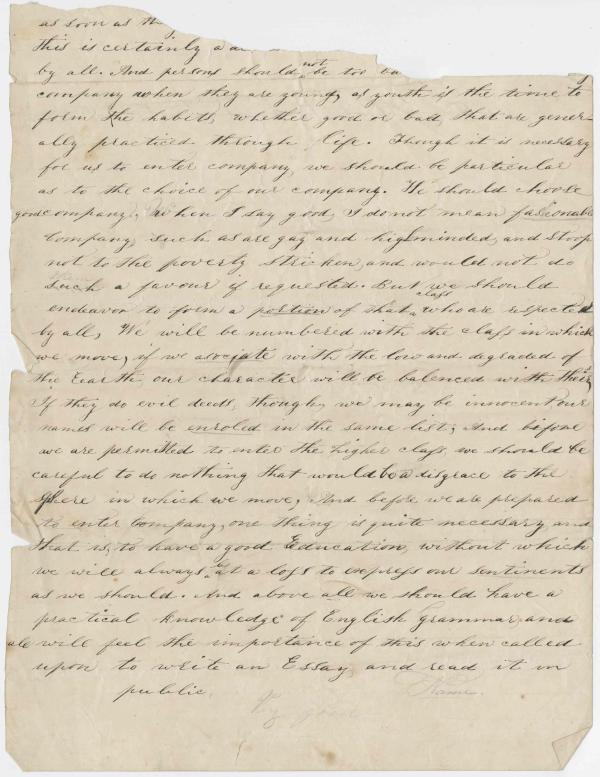 as soon as th
this is certainly a
by all. And persons should not be too
company when they are young, as youth is the time to
form the habits, whether good or bad, that are gener-
ally practiced through life. Though it is necessary
for us to enter company, we should be particular
as to the choice of our company. We should choose
good company, When I say good, I do not mean fasionable
Company, such as are gay and highminded, and stoop
not to the poverty stricken, and would not do
such a favour if requested. But we should
endeavor to form a portion of that class who are respected
by all, We will be numbered with the class in which
we move, if we asociate with the low and degraded of
the Earth, our character will be balenced with theirs
If they do evil deeds, though, we may be innocent, our
names will be enroled in the same list; And before
we are permitted to enter the higher class, we should be
careful to do nothing that would be a disgrace to the
sphere in which we move, And before we are prepared
to enter Company, one thing is quite necessary, and
that is, to have a good Education, without which
we will always be at a loss to express our sentiments
as we should. And above all we should have a
practical knowledge of English Grammar, and
we will feel the importance of this when called
upon to write an Essay, and read it in
public.
Name.